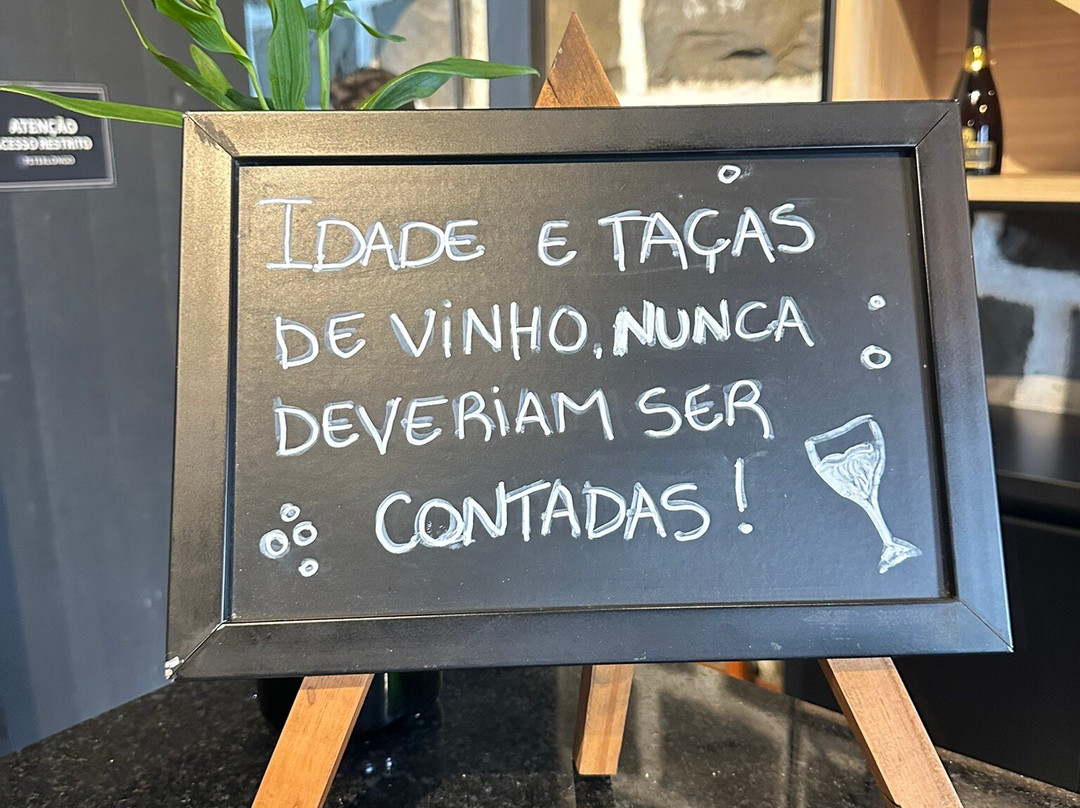 ATENÇÃO
CESSO RESTRITO
IDADE E TAÇAS
DE VINHO, NUNCA
DEVERIAM SER
CONTADAS!